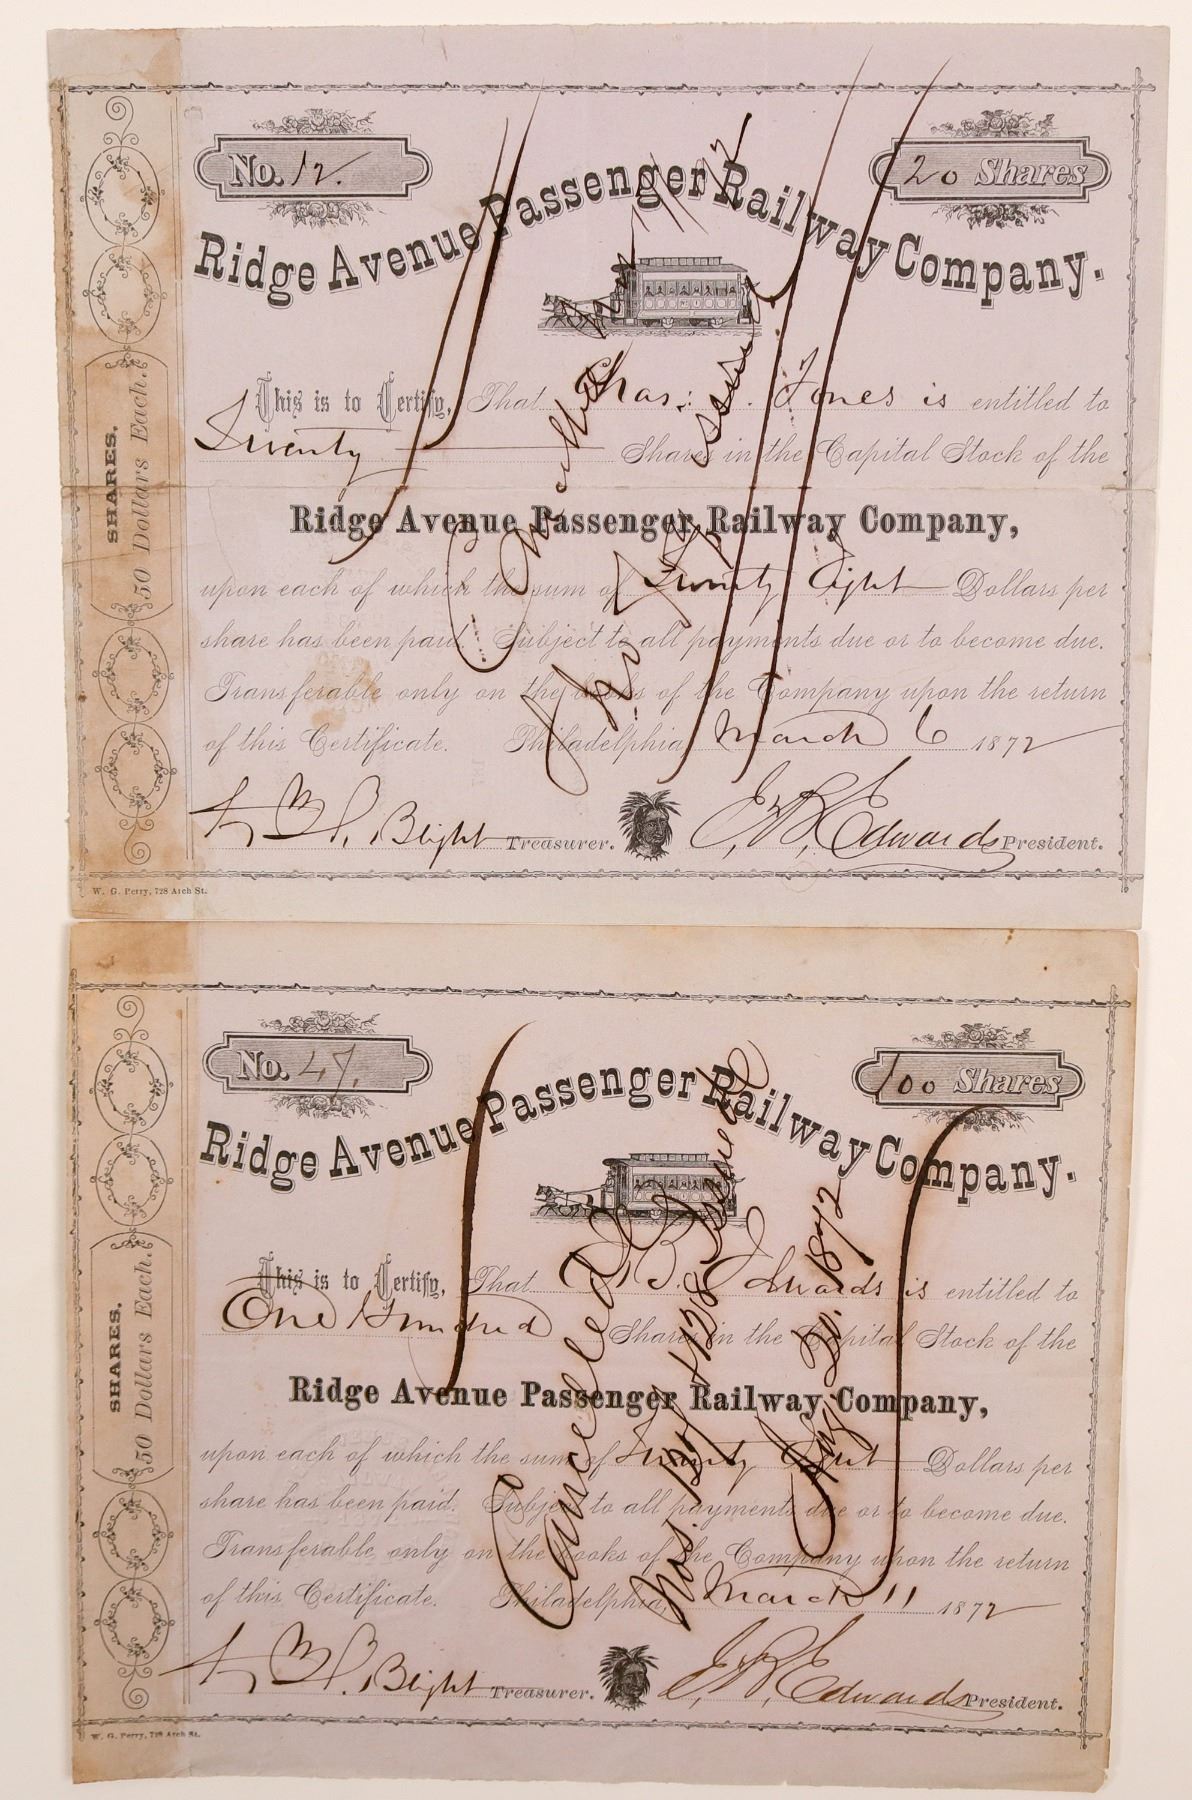 No. 12.
20 Shares
Ridge Avenue Passenger Railway Company.
This is to Certify, That Chas: Jones is entitled to
Twenty Shares in the Capital Stock of the
Ridge Avenue Passenger Railway Company,
upon each of which the sum of Twenty Eight Dollars per
share has been paid. Subject to all payments due or to become due.
Transferable only on the books of the Company upon the return
of this Certificate. Philadelphia March 6 1872
Blight Treasurer. E. R. Edwards President.
SHARES.
50 Dollars Each.
W. G. Perry, 728 Arch St.
No. 47.
100 Shares
Ridge Avenue Passenger Railway Company.
This is to Certify, That Edwards is entitled to
One Hundred Shares in the Capital Stock of the
Ridge Avenue Passenger Railway Company,
upon each of which the sum of Twenty Eight Dollars per
share has been paid. Subject to all payments due or to become due.
Transferable only on the books of the Company upon the return
of this Certificate. Philadelphia, March 11 1872
Blight Treasurer. E. R. Edwards President.
Cancelled
Nos. 127 & 128 Issued
1872
SHARES.
50 Dollars Each.
W. G. Perry, 728 Arch St.